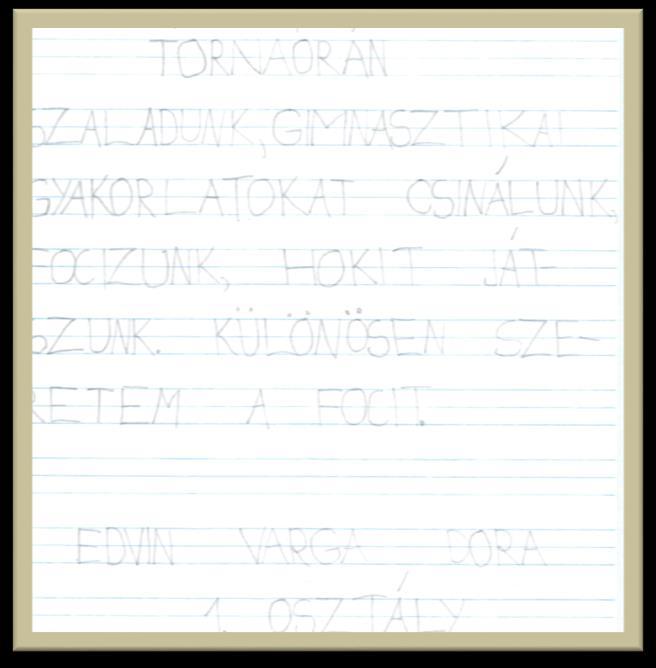 TORNAÓRÁN
SZALADUNK, GIMNASZTIKAI
GYAKORLATOKAT CSINÁLUNK,
FOCIZUNK, HOKIT JÁT-
SZUNK. KÜLÖNÖSEN SZE-
RETEM A FOCIT.
EDVIN VARGA DORA
1. OSZTÁLY